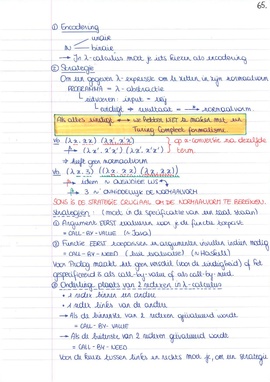 65.
① Encodering
unair
N
binair
→ In λ-calculus moet je iets kiezen als encodering
② Strategie
Om een gegeven λ-expressie om te zetten in zijn normaalvorm
PROGRAMMA = λ-abstractie
uitvoeren: input = λxy
eindigt → resultaat = normaalvorm.
Als alles eindigt ↔ we hebben NIET te maken met een
Turing Compleet formalisme
Vb (λx.xx) (λx.xx)
→ (λx'.x'x') (λx'.x'x')
op α-conversie na dezelfde
term
→ heeft geen normaalvorm
Vb (λx.3) ((λx.xx) (λx.xx))
3 is ONMIDDELLIJK DE NORMAALVORM
SOMS IS DE STRATEGIE CRUCIAAL OM DE NORMAALVORM TE BEREIKEN.
strategieën: (moet in de specificatie van een taal staan)
① Argument EERST evalueren voor je functie toepast
= CALL-BY-VALUE (≈ Java)
② Functie EERST toepassen en argumenten invullen indien nodig
= CALL-BY-NEED (luie evaluatie) (≈ Haskell)
Voor Prolog maakt het geen verschil (voor de eindigheid) of het
gespecificeerd is als call-by-value of als call-by-need.
③ Onderling plaats van 2 redexen in λ-calculus
• 1 redex binnen een andere
• 1 redex links van de andere
→ Als de binnenste van 2 redexen geëvalueerd wordt
= CALL-BY-VALUE
→ Als de buitenste van 2 redexen geëvalueerd wordt
= CALL-BY-NEED
Voor de keuze tussen links en rechts moet je, om een strategie